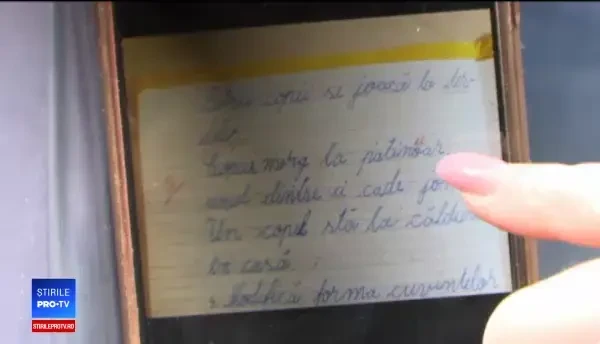 copii se joacă la
Copiii merg la patinoar,
unul dintre ei cade
Un copil stă la
la casă
Modifică forma cuvintelor
ȘTIRILE
PRO•TV
STIRILEPROTV.RO